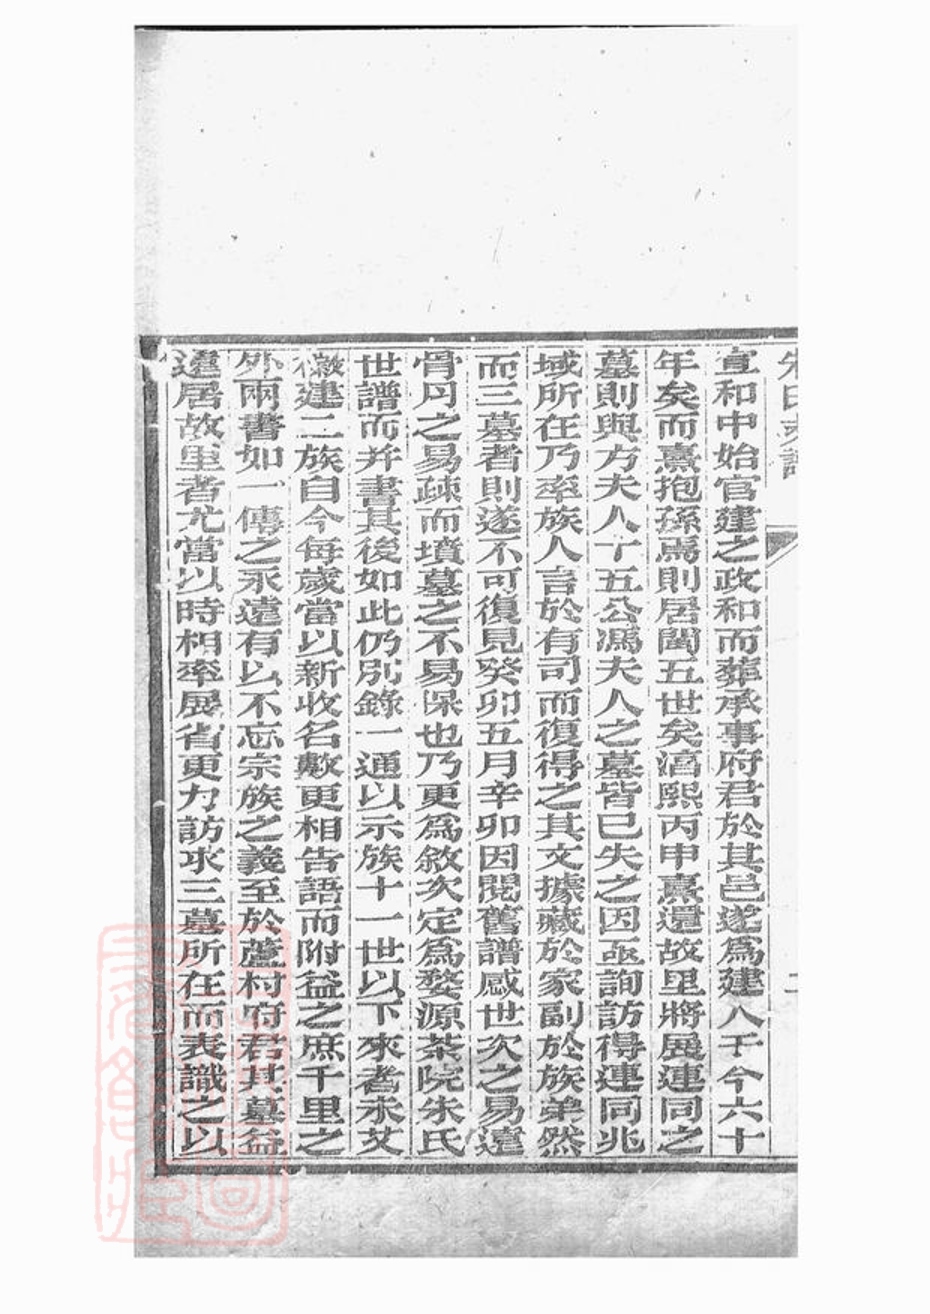 宣和中始官建之政和而葬承事府君於其邑遂爲建人于今六十
年矣而熹抱孫焉則居閩五世矣淳熙丙申熹還故里將展連同之
墓則與方夫人十五公馮夫人之墓皆已失之因亟詢訪得連同兆
域所在乃率族人言於有司而復得之其文據藏於家副於族弟然
而三墓者則遂不可復見癸卯五月辛卯因閱舊譜感世次之易遠
骨肉之易疎而墳墓之不易保也乃更爲敘次定爲婺源茶院朱氏
世譜而并書其後如此仍別錄一通以示族十一世以下來者未艾
徽建二族自今每歲當以新收名數更相告語而附益之庶千里之
外兩書如一傳之永遠有以不忘宗族之義至於蘆村府君其墓益
遠居故里者尤當以時相率展省更力訪求三墓所在而表識之以